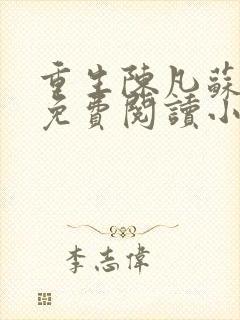 重生陳凡蘇
免費閱讀小
李志偉